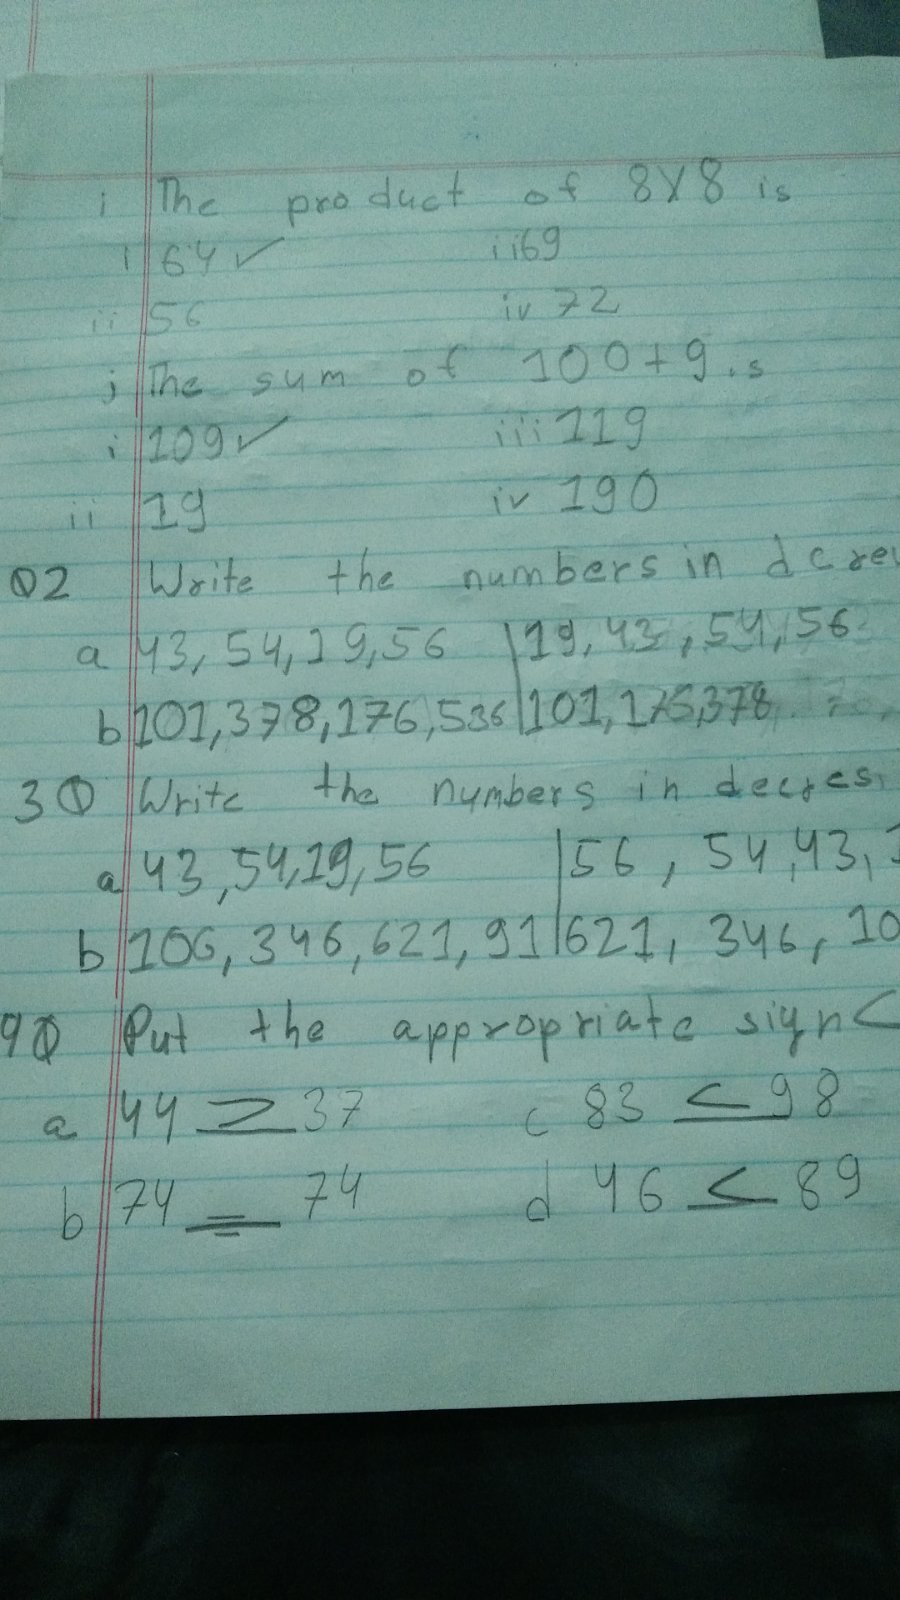 i The product of 8X8 is
i 64 ✓ ii 69
ii 56 iv 72
j The sum of 100+9 is
i 109 ✓ iii 119
ii 19 iv 190
Q2 Write the numbers in dcre
a 43, 54, 19, 56 | 19, 43, 54, 56
b 101, 378, 176, 536 | 101, 176, 378
3Q Write the numbers in decres
a 43, 54, 19, 56 | 56, 54, 43, 1
b 106, 346, 621, 91 | 621, 346, 10
4Q Put the appropriate sign <
a 44 > 37 c 83 < 98
b 74 = 74 d 46 < 89